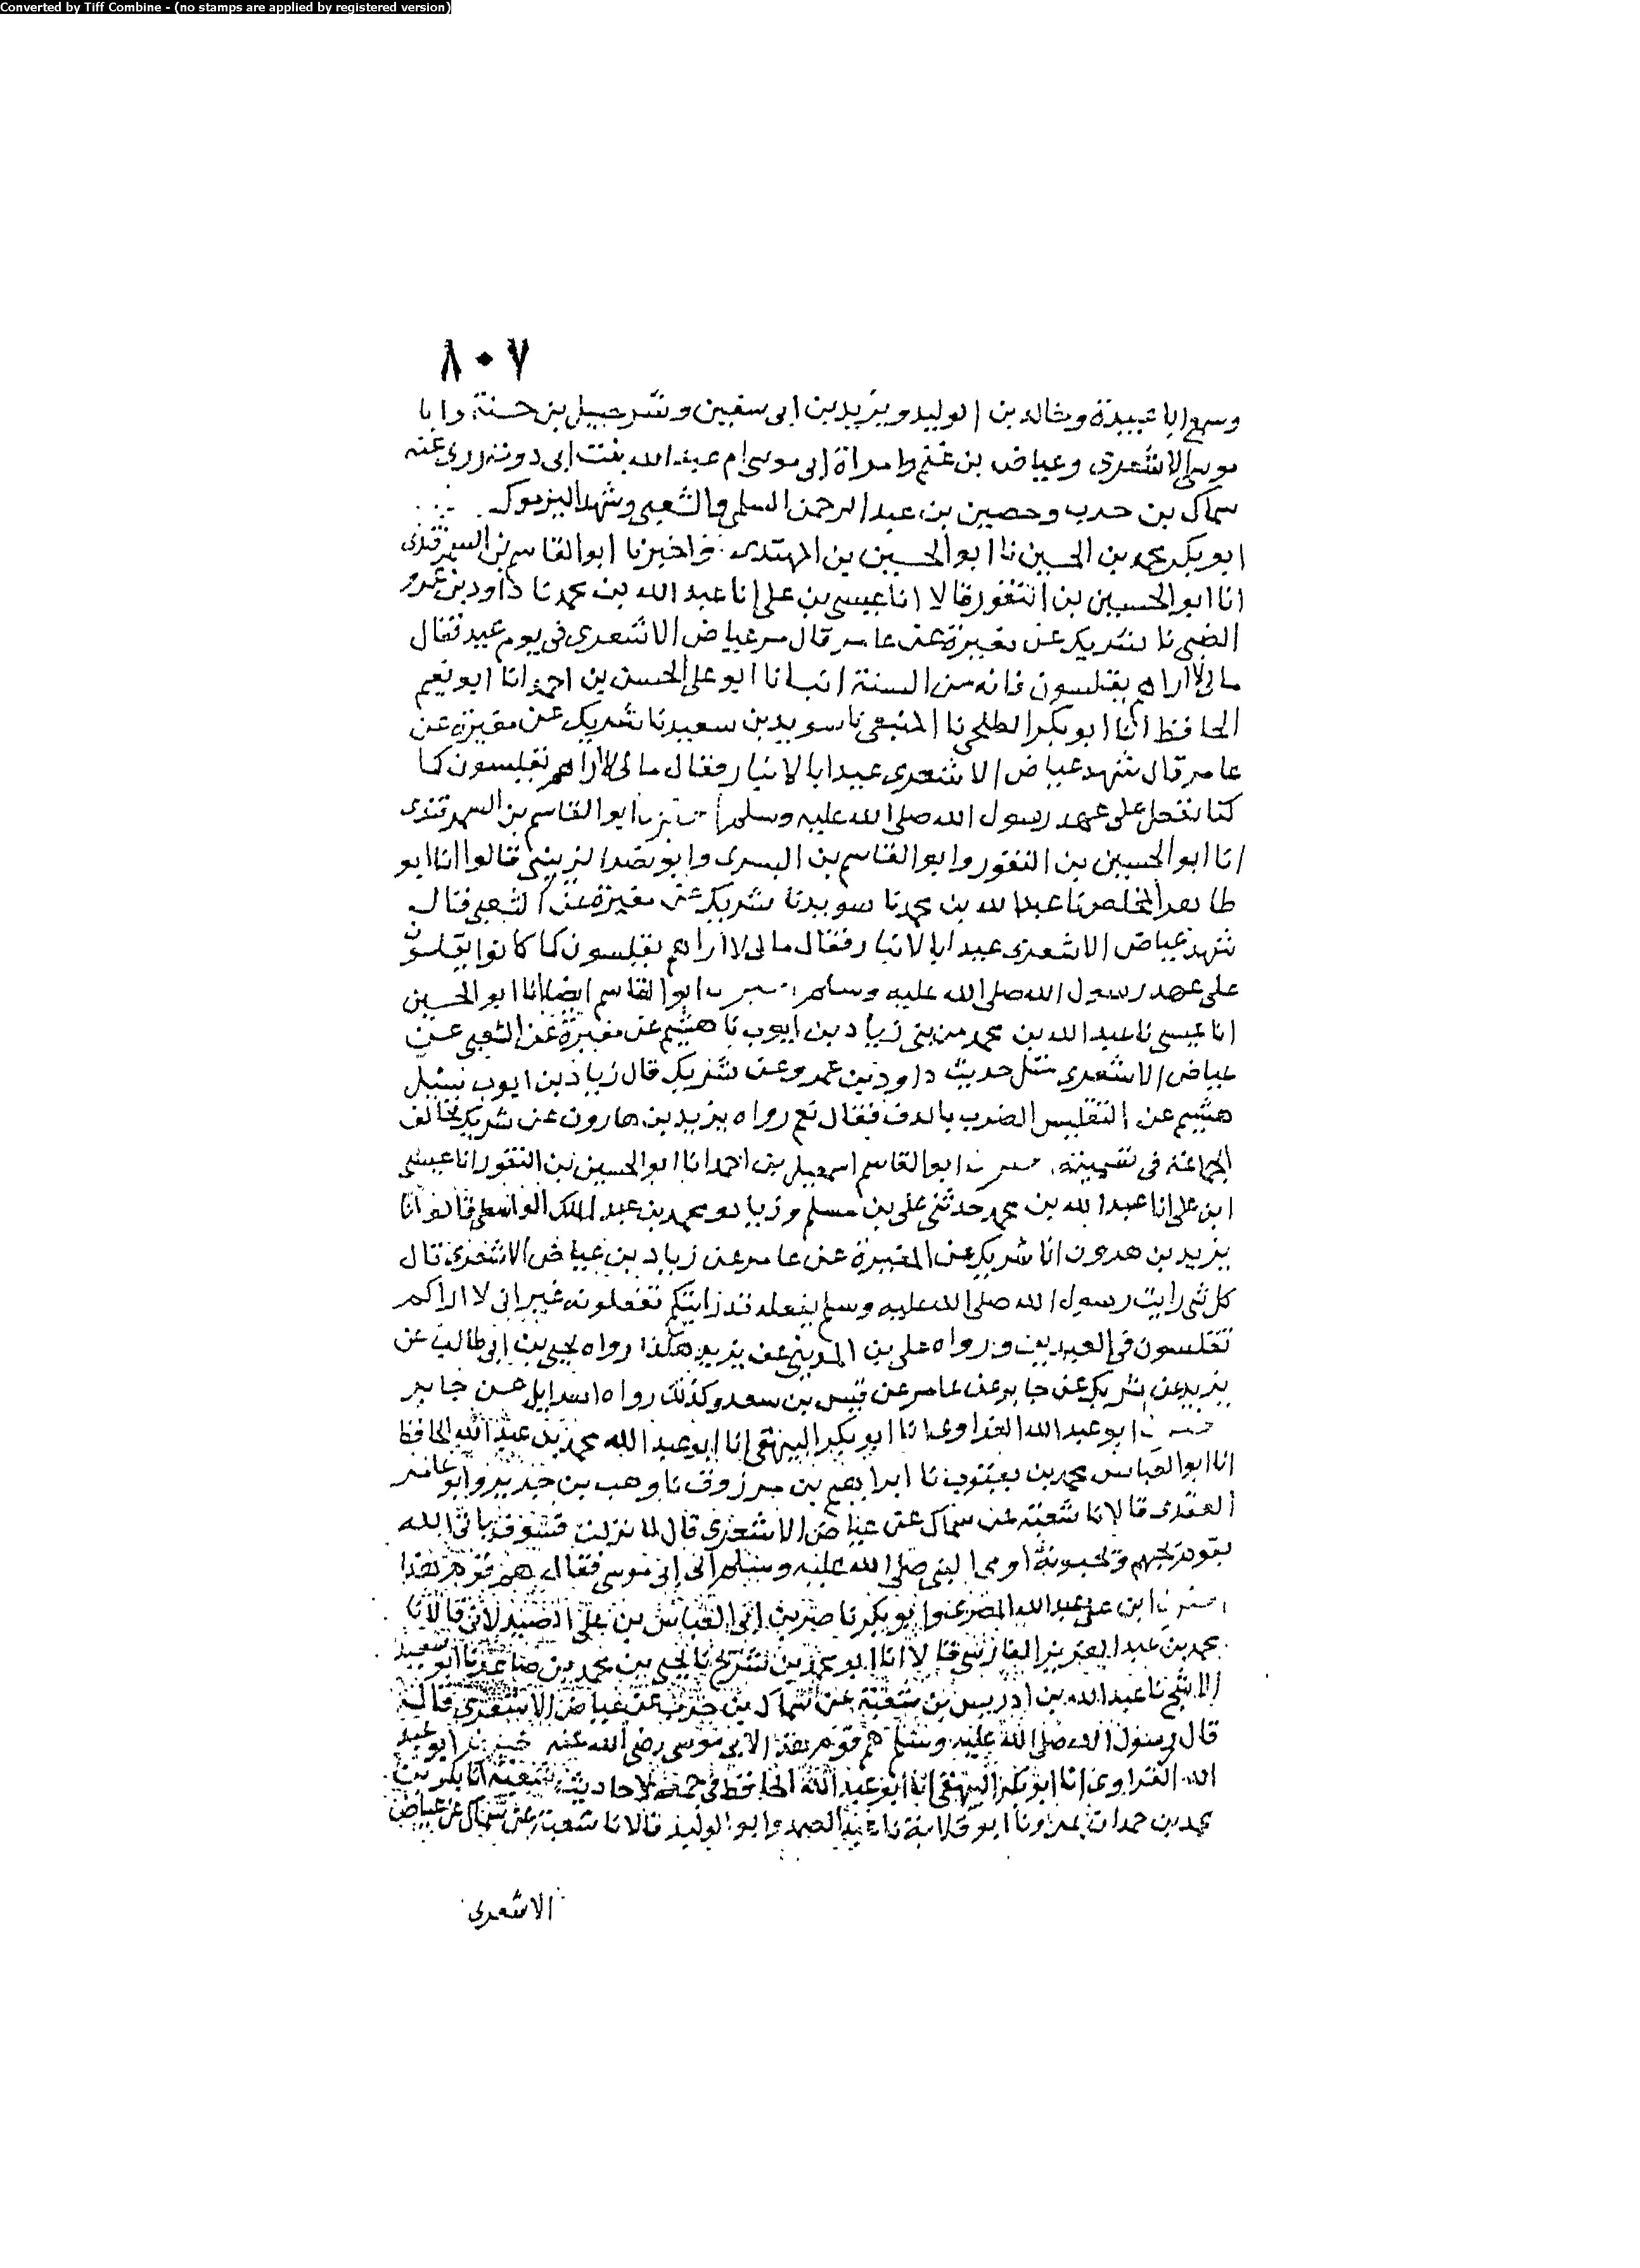 Converted by Tiff Combine - (no stamps are applied by registered version)
٨٠٧
وسمع ابا عبيدة وخالد بن الوليد ويزيد بن ابى سفين وشرحبيل بن حسنة وابا
موسى الاشعرى وعياض بن غنم وامراة ابى موسى ام عبد الله بنت ابى دومة روى عنه
سماك بن حرب وحصين بن عبد الرحمن السلمى والشعبى وشهد اليرموك
ابو بكر محمد بن الحسين نا ابو الحسين بن المهتدى واخبرنا ابو القاسم بن السمرقندى
انا ابو الحسين بن النقور قالا انا عيسى بن على انا عبد الله بن محمد نا داود بن عمرو
الضبى نا شريك عن مغيرة عن عامر قال مر عياض الاشعرى فى يوم عيد فقال
مالى لا اراهم يقلسون فانه من السنة انبانا ابو على الحسن بن احمد انا ابو نعيم
الحافظ انا ابو بكر الطلحى نا المنبعى نا سويد بن سعيد نا شريك عن مغيرة عن
عامر قال شهد عياض الاشعرى عيدا بالانبار فقال مالى لا اراهم تقلسون كما
كنا نفعل على عهد رسول الله صلى الله عليه وسلم ابو القاسم بن السمرقندى
انا ابو الحسين بن النقور وابو القاسم بن البسرى وابو نصر الزينبى قالوا انا ابو
طاهر المخلص نا عبد الله بن محمد نا سويد نا شريك عن مغيرة عن الشعبى قال
شهد عياض الاشعرى عيدا بالانبار فقال مالى لا اراهم يقلسون كما كانوا يقلسون
على عهد رسول الله صلى الله عليه وسلم ابو القاسم ايضا انا ابو الحسين
انا عيسى نا عبد الله بن محمد زياد بن ايوب نا هشيم عن مغيرة عن الشعبى عن
عياض الاشعرى مثل حديث داود بن عمرو عن شريك قال زياد بن ايوب
هشيم عن التقليس الضرب بالدف فقال نعم رواه يزيد بن هارون عن شريك فخالف
الجماعة فى ابو القاسم اسمعيل بن احمد انا ابو الحسين بن النقور انا عيسى
ابن على انا عبد الله بن محمد حدثنى على بن مسلم وزياد ومحمد بن عبد الملك الواسطى قالوا انا
يزيد بن هرون انا شريك عن المغيرة عن عامر عن زياد بن عياض الاشعرى قال
كل شى رايت رسول الله صلى الله عليه وسلم يفعله قد رايتكم تفعلونه غير انى لا اراكم
تقلسون فى العيدين ورواه على بن المدينى عن يزيد هكذا رواه يحيى بن ابى طالب عن
يزيد عن شريك عن جابر عن عامر عن قيس بن سعد وكذلك رواه اسرايل عن جابر
ابو عبد الله الفراوى انا ابو بكر البيهقى انا ابو عبد الله محمد بن عبد الله الحافظ
انا ابو العباس محمد بن يعقوب نا ابراهيم بن مرزوق نا وهب بن جرير وابو عامر
العقدى قالا نا شعبة عن سماك عن عياض الاشعرى قال لما نزلت فسوف ياتى الله
بقوم يحبهم ويحبونه اومى النبى صلى الله عليه وسلم الى ابى موسى فقال هم قوم هذا
محمد بن عبد العزيز الفارسى قالا انا ابو محمد بن شريح نا يحيى بن محمد بن صاعد نا ابو سعيد
الاشج نا عبد الله بن ادريس بن شعبة عن سماك بن حرب عن عياض الاشعرى قال
قال رسول الله صلى الله عليه وسلم هم قوم هذا لابى موسى رضى الله عنه ابو عبد
الله الفراوى انا ابو بكر البيهقى انا ابو عبد الله الحافظ فى جمعه لاحاديث شعبة انا بكر بن
محمد بن حمدان بمرو نا ابو قلابة نا عبد الصمد وابو الوليد قالا نا شعبة عن سماك عن عياض
الاشعرى